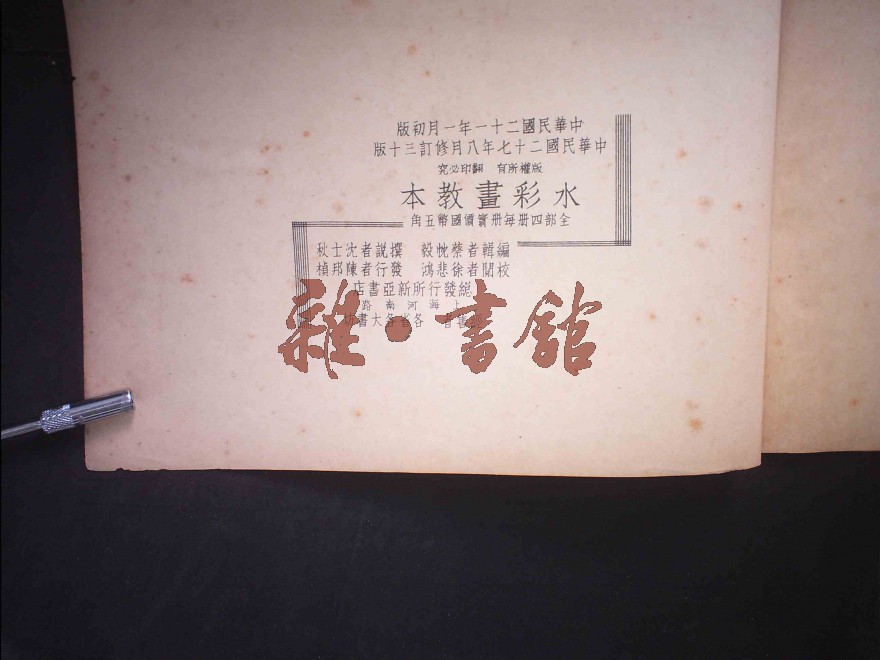 中華民國二十一年一月初版
中華民國二十七年八月修訂三十版
版權所有　翻印必究
水彩畫教本
全部四册每册實價國幣五角
編輯者蔡忱毅　撰説者沈士秋
校閱者徐悲鴻　發行者陳邦楨
總發行所新亞書店
上海河南路
各省各大書
雜·書館